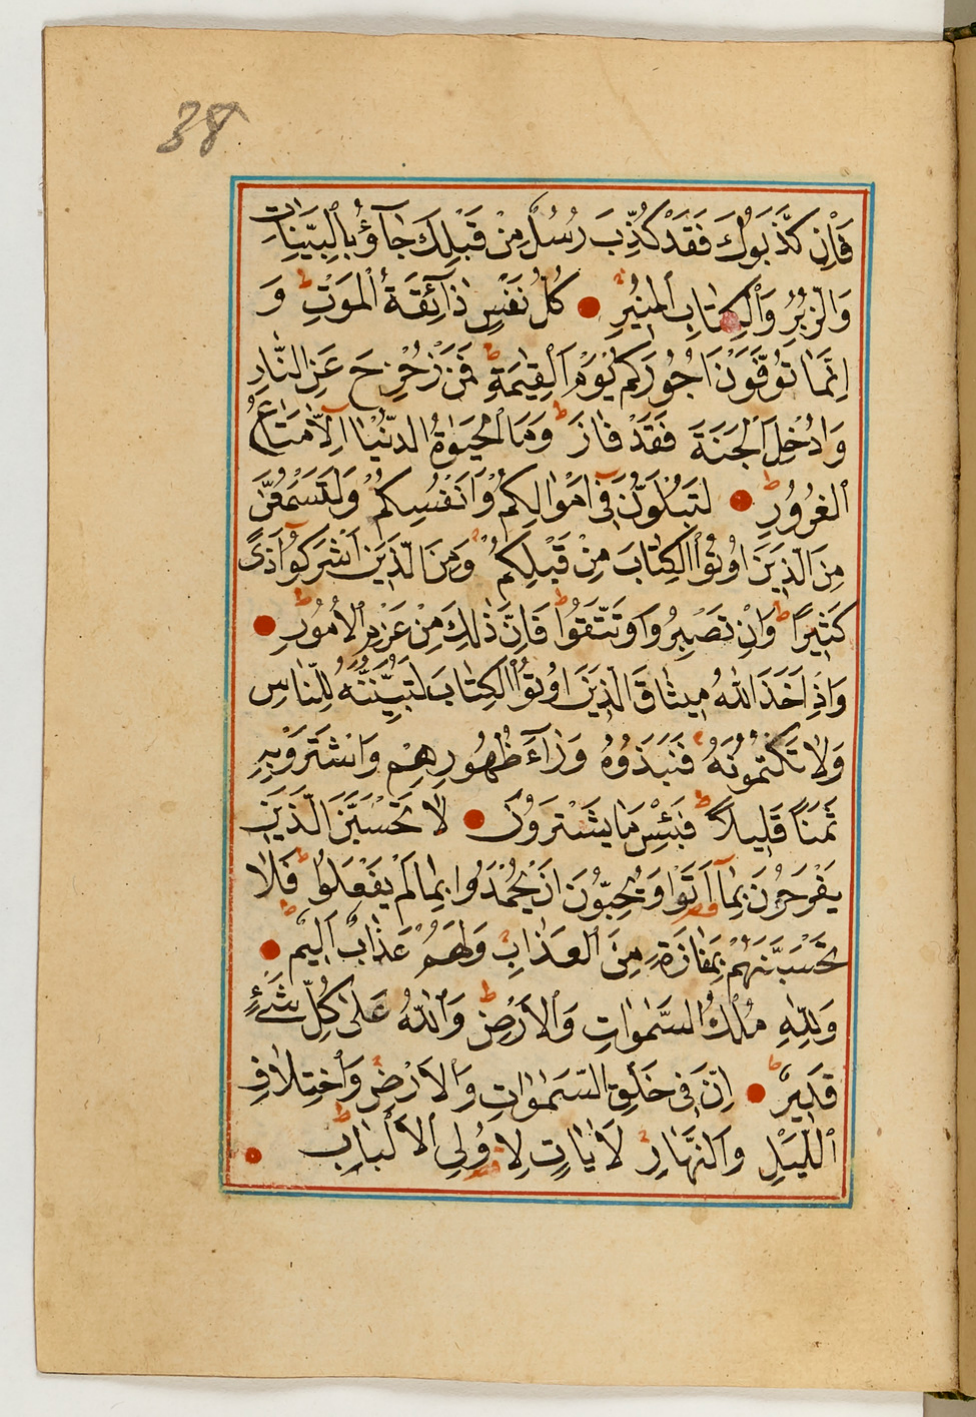 38
فَاِنْ كَذَّبُوكَ فَقَدْ كُذِّبَ رُسُلٌ مِنْ قَبْلِكَ جَآؤُ بِالْبَيِّنَاتِ
وَالزُّبُرِ وَالْكِتَابِ الْمُنِيرِ كُلُّ نَفْسٍ ذَآئِقَةُ الْمَوْتِ ط وَ
اِنَّمَا تُوَفَّوْنَ اُجُورَكُمْ يَوْمَ الْقِيٰمَةِ ط فَمَنْ زُحْزِحَ عَنِ النَّارِ
وَاُدْخِلَ الْجَنَّةَ فَقَدْ فَازَ ط وَمَا الْحَيٰوةُ الدُّنْيَا اِلَّا مَتَاعُ
الْغُرُورِ ط لَتُبْلَوُنَّ فِى اَمْوَالِكُمْ وَاَنْفُسِكُمْ وَلَتَسْمَعُنَّ
مِنَ الَّذِينَ اُوتُوا الْكِتَابَ مِنْ قَبْلِكُمْ وَمِنَ الَّذِينَ اَشْرَكُوا اَذًى
كَثِيرًا ط وَاِنْ تَصْبِرُوا وَتَتَّقُوا ط فَاِنَّ ذٰلِكَ مِنْ عَزْمِ الْاُمُورِ ط
وَاِذْ اَخَذَ اللّٰهُ مِيثَاقَ الَّذِينَ اُوتُوا الْكِتَابَ لَتُبَيِّنُنَّهُ لِلنَّاسِ
وَلَا تَكْتُمُونَهُ فَنَبَذُوهُ وَرَآءَ ظُهُورِهِمْ وَاشْتَرَوْا بِهِ
ثَمَنًا قَلِيلًا ط فَبِئْسَ مَا يَشْتَرُونَ لَا تَحْسَبَنَّ الَّذِينَ
يَفْرَحُونَ بِمَآ اَتَوْا وَيُحِبُّونَ اَنْ يُحْمَدُوا بِمَا لَمْ يَفْعَلُوا ط فَلَا
تَحْسَبَنَّهُمْ بِمَفَازَةٍ مِنَ الْعَذَابِ وَلَهُمْ عَذَابٌ اَلِيمٌ ط
وَلِلّٰهِ مُلْكُ السَّمٰوَاتِ وَالْاَرْضِ ط وَاللّٰهُ عَلٰى كُلِّ شَيْءٍ
قَدِيرٌ ط اِنَّ فِى خَلْقِ السَّمٰوَاتِ وَالْاَرْضِ وَاخْتِلَافِ
الَّيْلِ وَالنَّهَارِ لَاٰيَاتٍ لِاُولِى الْاَلْبَابِ ط